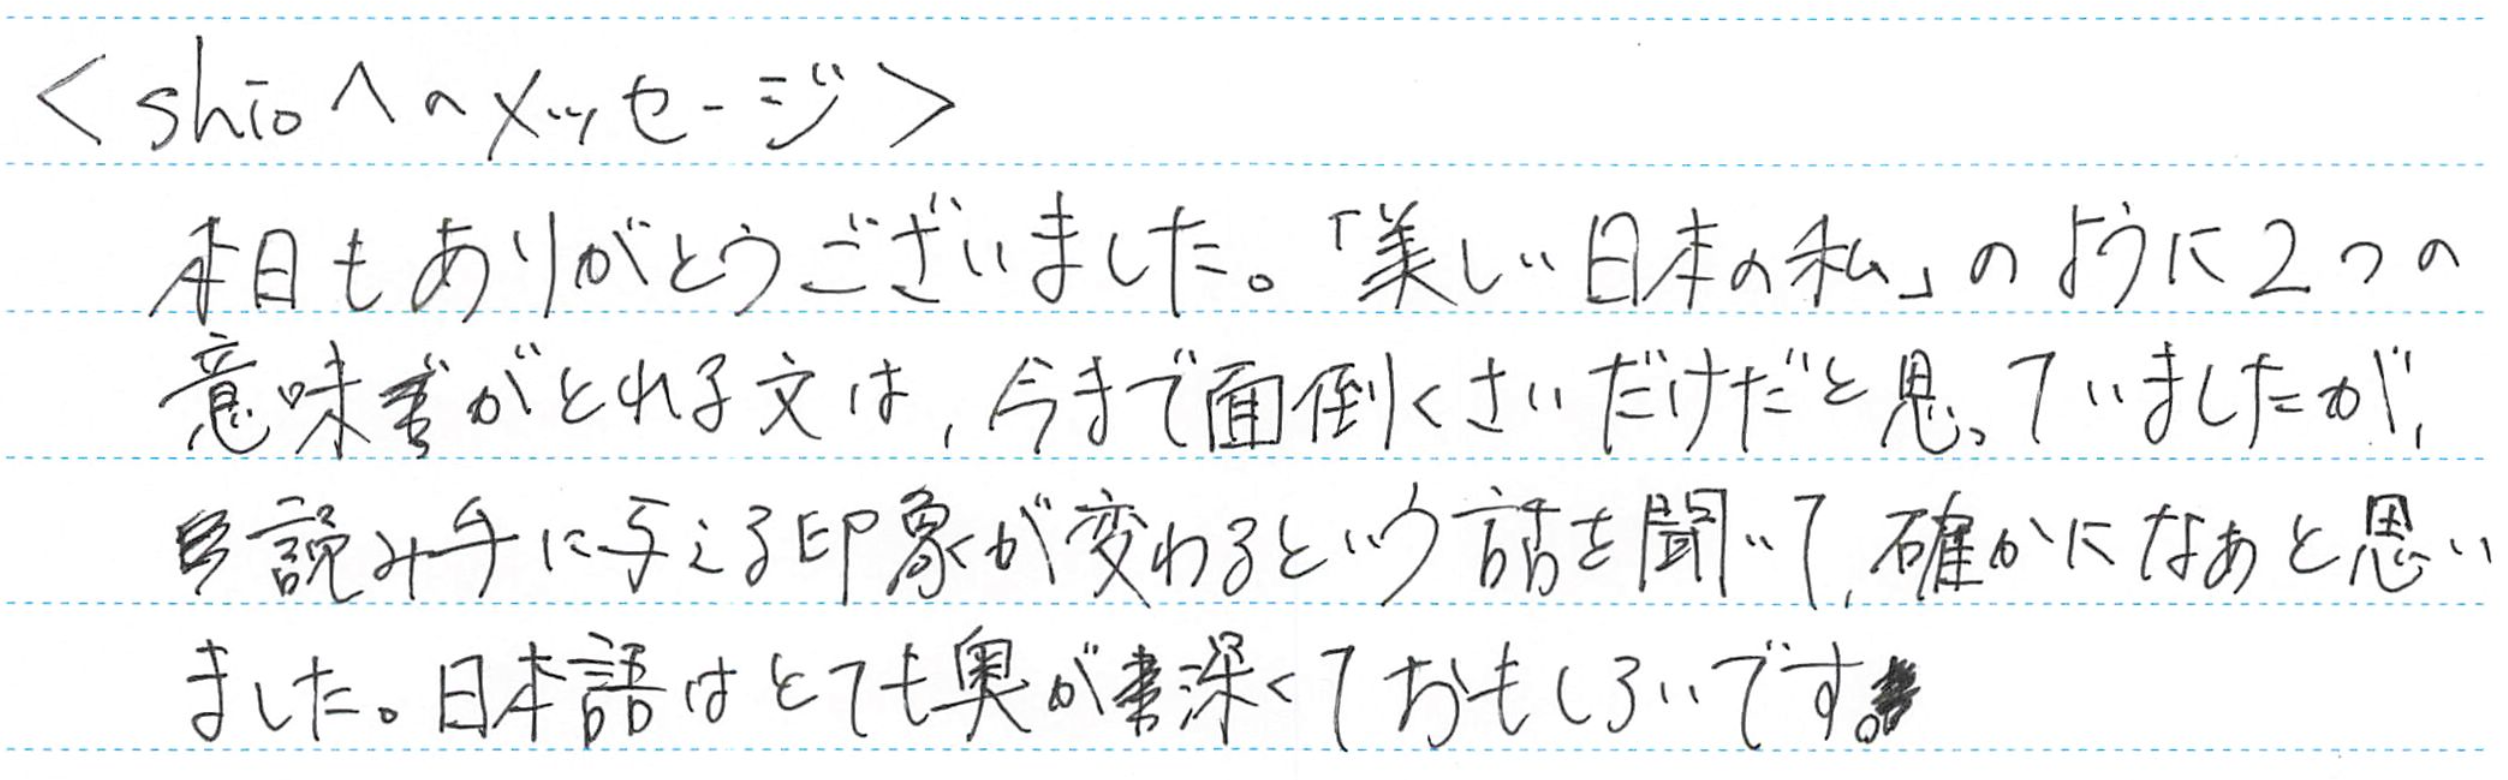 <shioへのメッセージ>
本日もありがとうございました。「美しい日本の私」のように2つの
意味がとれる文は,今まで面倒くさいだけだと思っていましたが,
読み手に与える印象が変わるという話を聞いて,確かになあと思い
ました。日本語はとても奥が深くておもしろいです。